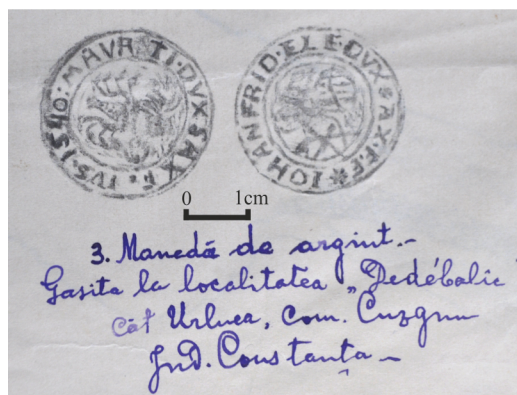 IVS·1540: MAVR TI·DVX SAX F.
IOHAN FRID·ELE·DVX SAX·F·F✱
0 1cm
3. Monedă de argint.-
Gasita la localitatea „Dedébalic"
cǎt Urluea, com. Cuzgun
Jud. Constanța -